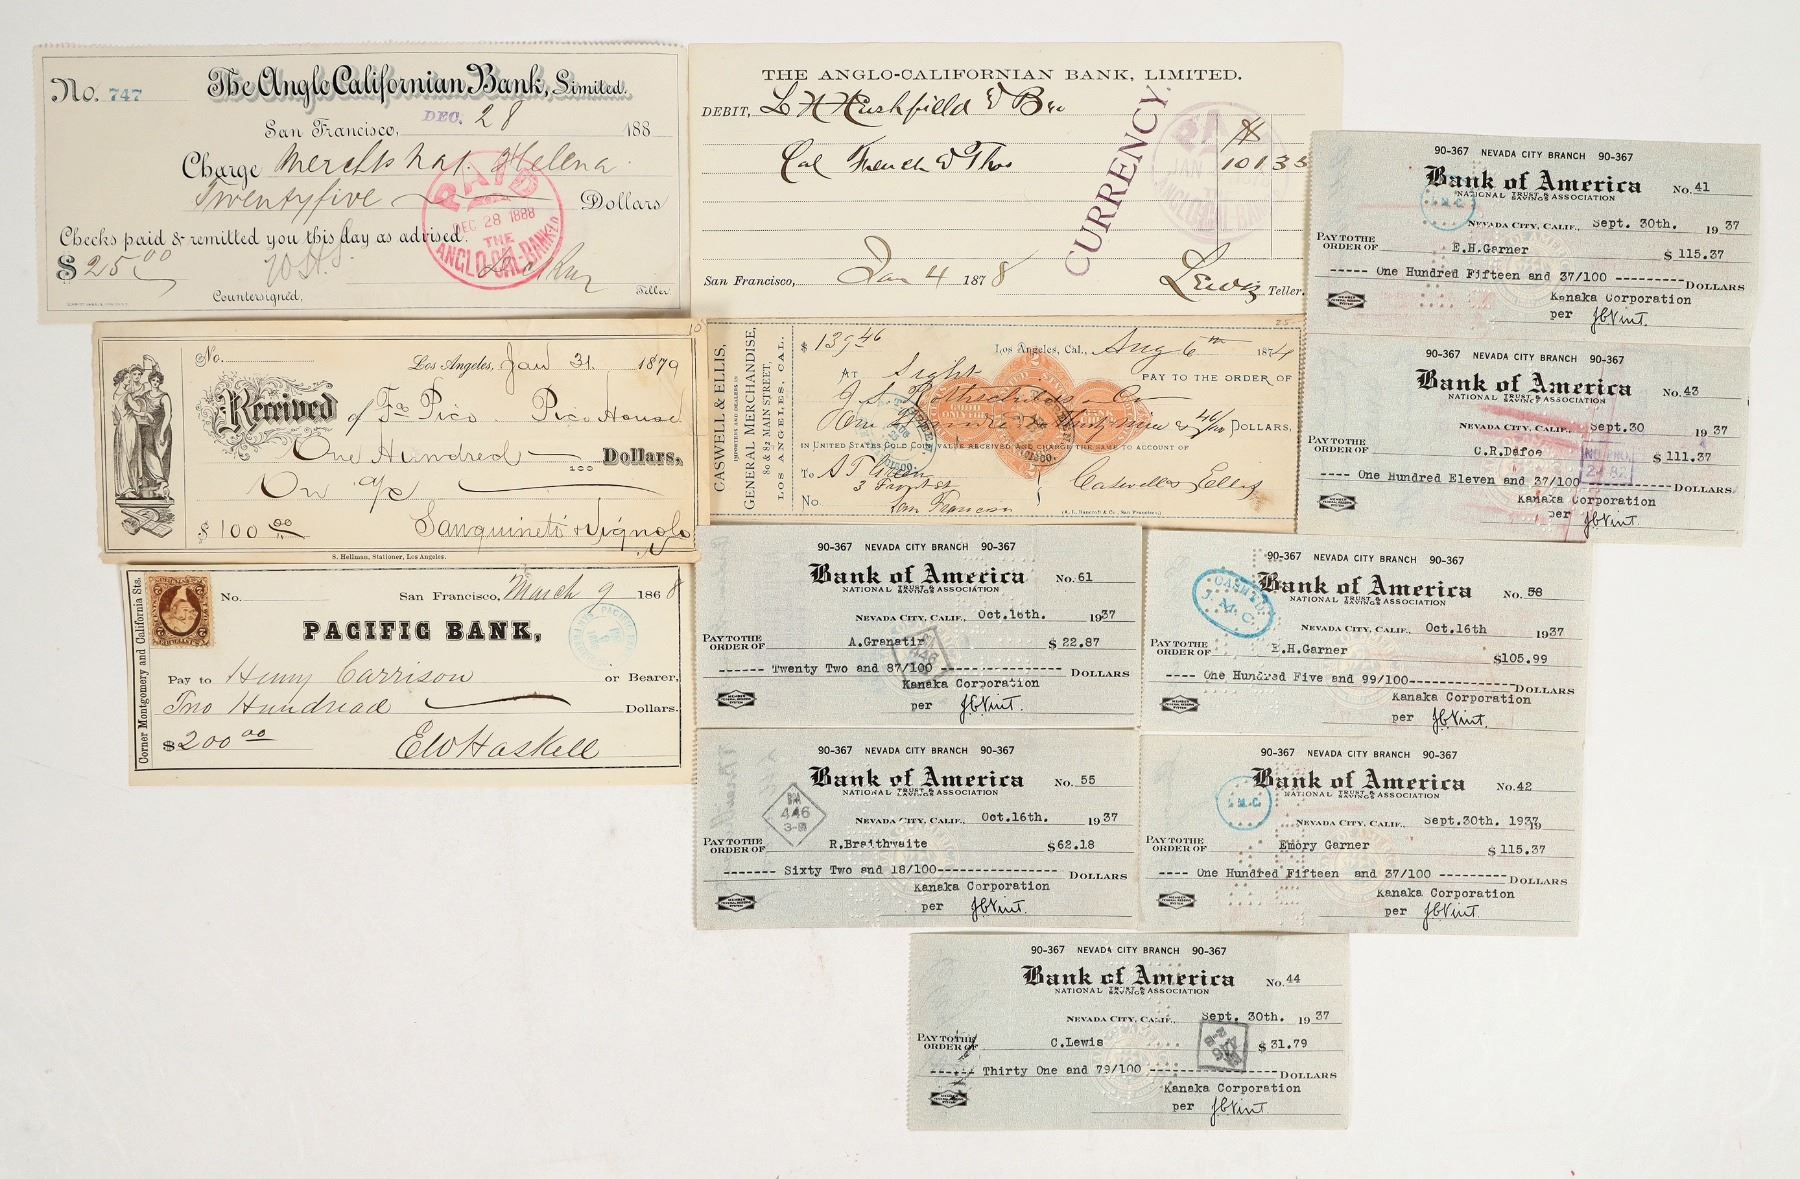 No. 747
The Anglo Californian Bank, Limited.
DEC. 28
San Francisco, 188
Charge Merchts Nat. Helena
Twentyfive Dollars
Checks paid & remitted you this day as advised.
$ 25.00
Countersigned, Teller.
PAID
DEC 28 1888
THE
ANGLO-CAL-BANK-LD
THE ANGLO-CALIFORNIAN BANK, LIMITED.
DEBIT, L H Hushfield & Bro
Cal French & Thos 10135
CURRENCY.
PAID
JAN
THE
San Francisco, Jan 4 1878 Lewis Teller.
No.
Los Angeles, Jan 31 1879
Received of Fo Pico Pico House
One Hundred 100 Dollars,
On a/c
$ 100 00 Sanquineti & Vignolo
S. Hellman, Stationer, Los Angeles.
CASWELL & ELLIS,
IMPORTERS AND DEALERS IN
GENERAL MERCHANDISE,
80 & 82 MAIN STREET,
LOS ANGELES, CAL.
25-
$ 139.46 Los Angeles, Cal., Aug 6th 1874
AT Sight PAY TO THE ORDER OF
One Hundred & Thirty nine & 46/100 DOLLARS,
IN UNITED STATES GOLD COIN, VALUE RECEIVED AND CHARGE THE SAME TO ACCOUNT OF
To
3 Front St Caswell & Ellis
No. San Francisco
(A. L. Bancroft & Co., San Francisco.)
Corner Montgomery and California Sts.
No. San Francisco, March 9 1868
PACIFIC BANK,
Pay to Henry Carrison or Bearer,
Two Hundred Dollars.
$200 00 E W Haskell
90-367 NEVADA CITY BRANCH 90-367
Bank of America No. 41
NATIONAL TRUST & SAVINGS ASSOCIATION
NEVADA CITY, CALIF., Sept. 30th. 1937
PAY TO THE ORDER OF E.H.Garner $ 115.37
----- One Hundred Fifteen and 37/100 ---------- DOLLARS
Kanaka Corporation
per J C Vint.
MEMBER FEDERAL RESERVE SYSTEM
90-367 NEVADA CITY BRANCH 90-367
Bank of America No. 43
NATIONAL TRUST & SAVINGS ASSOCIATION
NEVADA CITY, CALIF., Sept.30 1937
PAY TO THE ORDER OF C.R.Dafoe $ 111.37
----- One Hundred Eleven and 37/100 ---------- DOLLARS
Kanaka Corporation
per J C Vint.
MEMBER FEDERAL RESERVE SYSTEM
90-367 NEVADA CITY BRANCH 90-367
Bank of America No. 61
NATIONAL TRUST & SAVINGS ASSOCIATION
NEVADA CITY, CALIF., Oct.16th. 1937
PAY TO THE ORDER OF A.Granatir $ 22.87
------ Twenty Two and 87/100 --------------- DOLLARS
Kanaka Corporation
per J C Vint.
MEMBER FEDERAL RESERVE SYSTEM
90-367 NEVADA CITY BRANCH 90-367
Bank of America No. 58
NATIONAL TRUST & SAVINGS ASSOCIATION
NEVADA CITY, CALIF., Oct.16th 1937
PAY TO THE ORDER OF E.H.Garner $105.99
---- One Hundred Five and 99/100------------- DOLLARS
Kanaka Corporation
per J C Vint.
MEMBER FEDERAL RESERVE SYSTEM
90-367 NEVADA CITY BRANCH 90-367
Bank of America No. 55
NATIONAL TRUST & SAVINGS ASSOCIATION
446
NEVADA CITY, CALIF., Oct.16th. 1937
PAY TO THE ORDER OF R.Braithwaite $62.18
------- Sixty Two and 18/100--------------- DOLLARS
Kanaka Corporation
per J C Vint.
MEMBER FEDERAL RESERVE SYSTEM
90-367 NEVADA CITY BRANCH 90-367
Bank of America No. 42
NATIONAL TRUST & SAVINGS ASSOCIATION
NEVADA CITY, CALIF., Sept.30th. 1937 19
PAY TO THE ORDER OF Emory Garner $ 115.37
---- One Hundred Fifteen and 37/100 ---------- DOLLARS
Kanaka Corporation
per J C Vint.
MEMBER FEDERAL RESERVE SYSTEM
90-367 NEVADA CITY BRANCH 90-367
Bank of America No. 44
NATIONAL TRUST & SAVINGS ASSOCIATION
NEVADA CITY, CALIF., Sept. 30th. 1937
PAY TO THE ORDER OF C.Lewis $ 31.79
------ Thirty One and 79/100 ------------------ DOLLARS
Kanaka Corporation
per J C Vint.